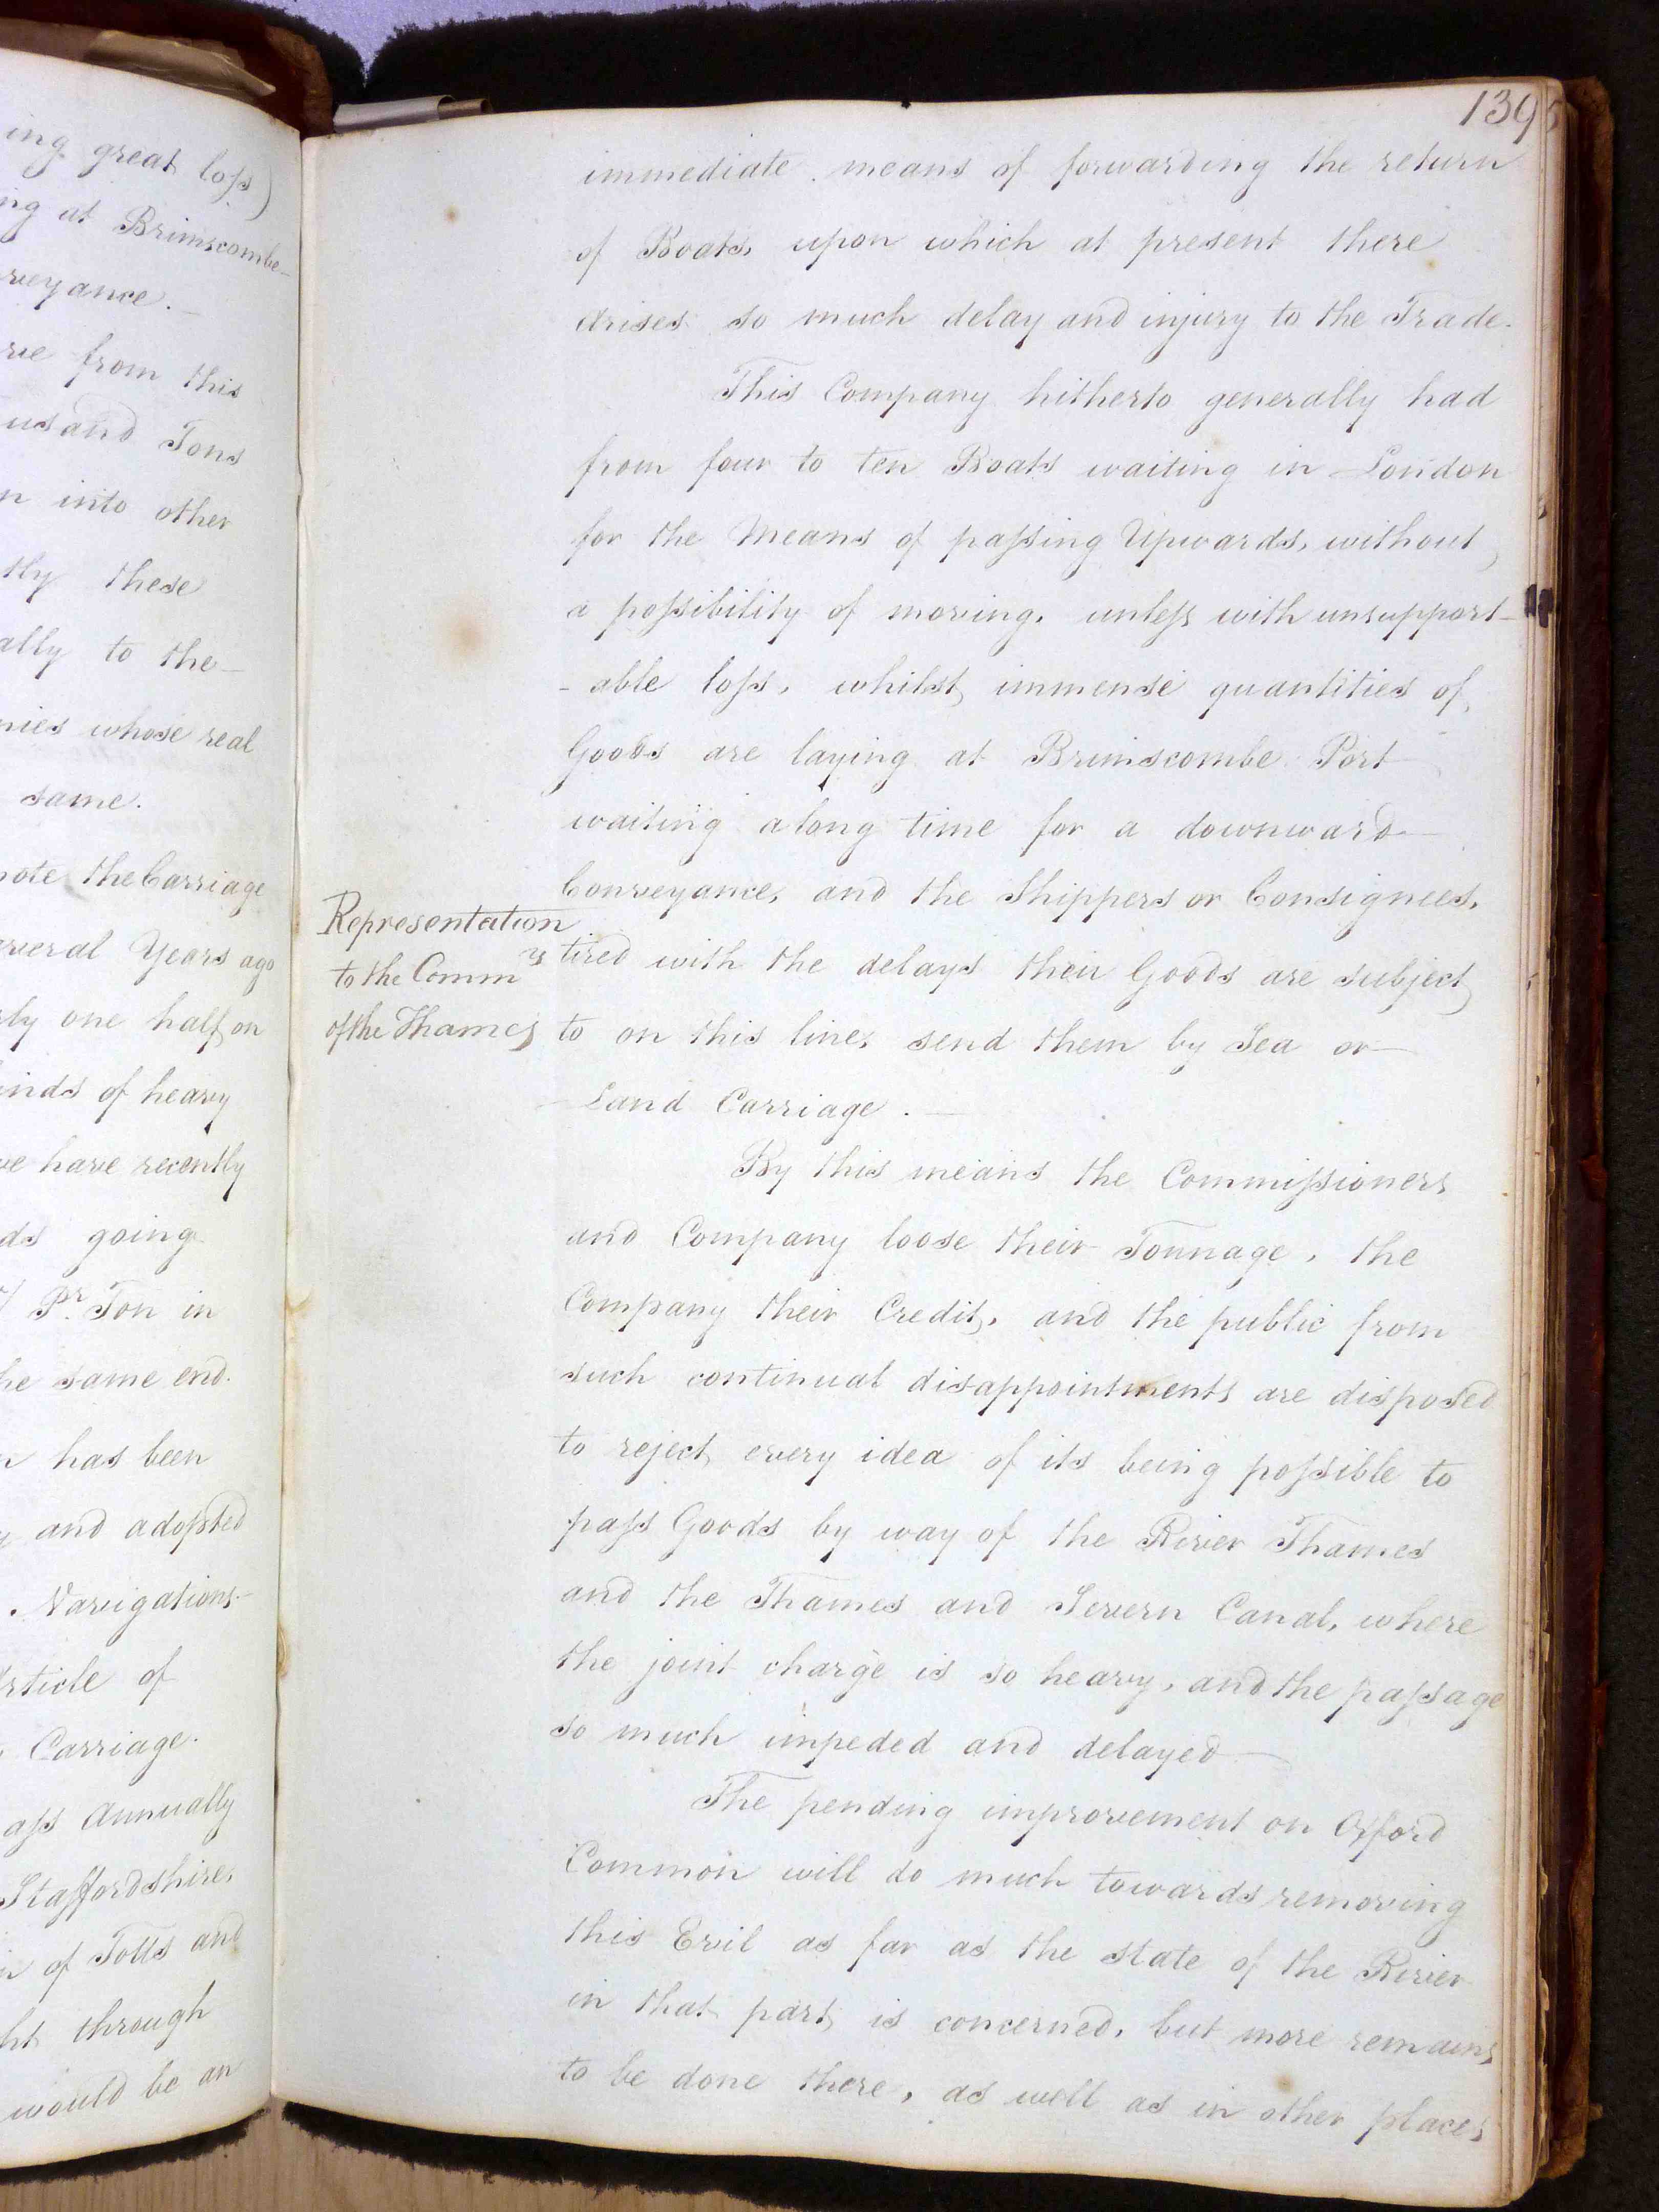 ing great loss)
ng at Brimscombe-
veyance.-
ve from this
usand Tons
n into other
tly these
ally to the-
nies whose real
same.
ote the Carriage
veral Years ago
rly one half on
inds of heavy
ve have recently
ds going
Pr. Ton in
he same end.
n has been
and adopted
. Navigations-
rticle of
, Carriage.
ass Annually
Staffordshire,
n of Tolls and
ht through
would be an
139
immediate means of forwarding the return
of Boats, upon which at present there
arises so much delay and injury to the Trade.
This Company hitherto generally had
from four to ten Boats waiting in London
for the Means of passing Upwards, without
a possibility of moving, unless with unsupport-
-able loss, whilst immense quantities of
Goods are laying at Brimscombe Port
waiting a long time for a downward-
Conveyance, and the Shippers or Consignees,
Representation
to the Commrs
of the Thames
tired with the delays their Goods are subject
to on this line, send them by Sea or-
Land Carriage.-
By this means the Commissioners
and Company loose their Tonnage, the
Company their Credit, and the public from
such continual disappointments are disposed
to reject every idea of its being possible to
pass Goods by way of the River Thames
and the Thames and Severn Canal, where
the joint charge is so heavy, and the passage
so much impeded and delayed-
The pending improvement on Oxford
Common will do much towards removing
this Evil as far as the state of the River
in that part is concerned, but more remains
to be done there, as well as in other places